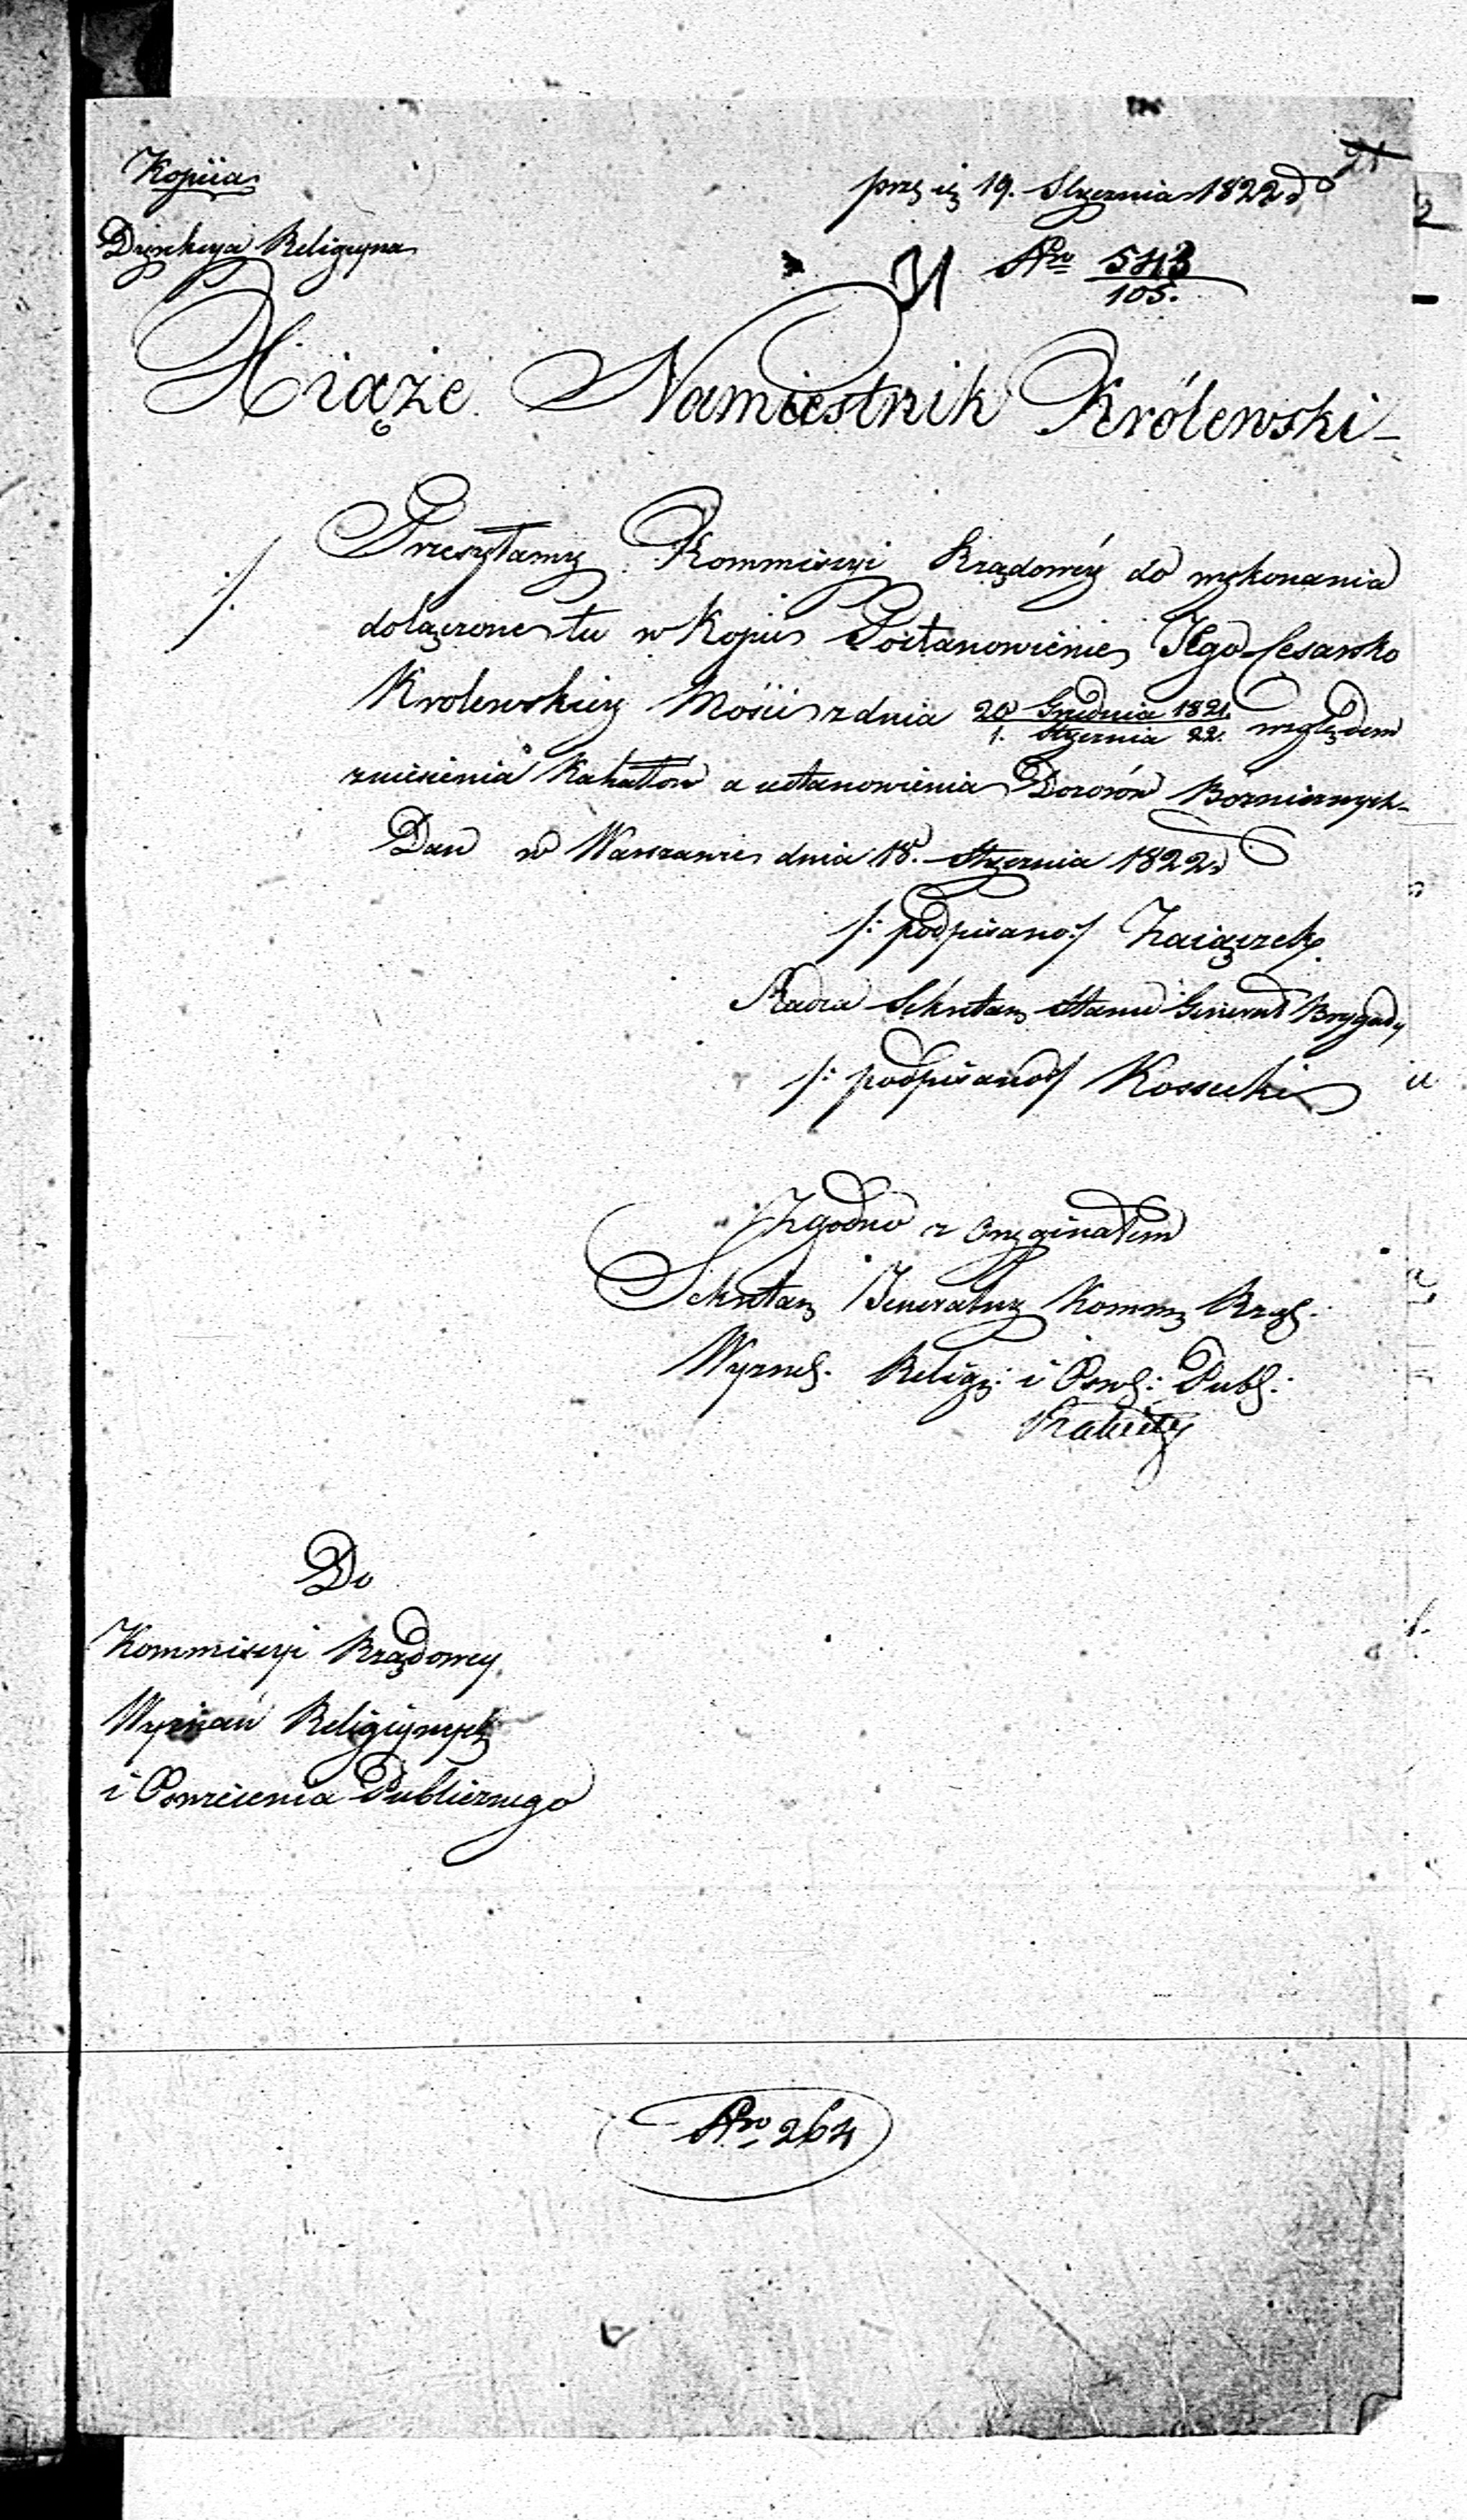 Kopiia
Dyrekcya Religiyna
prz. 19. Stycznia 1822
Nro 543/105.
Xiąże Namiestnik Królewski
Przesyłamy Kommissyi Rządowéy do wykonania
dołączone tu w Kopii Postanowienie Jego Cesarsko
Krolewskiey Mości z dnia 20 Grudnia 1821./1. Stycznia 22. względem
zniesienia Kahałow a ustanowienia Dozorów Bożniczych
Dan w Warszawie dnia 18. Stycznia 1822
/: podpisano :/ Zaiączek
Radca Sekretarz Stanu Generał Brygady
/: podpisano :/ Kossecki
Zgodno z Oryginałem
Sekretarz Jeneralny Kommy Rząd.
Wyzn. Religi: i Ośw: Publ:
Do
Kommissyi Rządowey
Wyznań Religiynych
i Oświecenia Publicznego
Nro 264
2